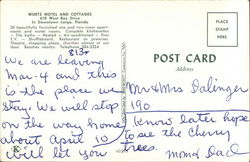 WURTZ MOTEL AND COTTAGES
610 West Bay Drive
In Downtown Largo, Florida
20 beautifully furnished one and two-room apart-
ments and motel rooms. Complete kitchenettes
Tile baths — Heated — Air-conditioned — Free
T.V. — Shuffleboard. Restaurant on premises
Theatre, shopping plaza, churches almost at our
door. Beaches nearby. Telephone: 584-2324
813-
We are leaving
Mar-4 and this
is the place we
stay. We will stop
on the way home
about April 10 to see the Cherry
will let you
know later hope
trees.
Mom & Dad
PLACE
STAMP
HERE
POST CARD
Address
Mr & Mrs Dalinger
190